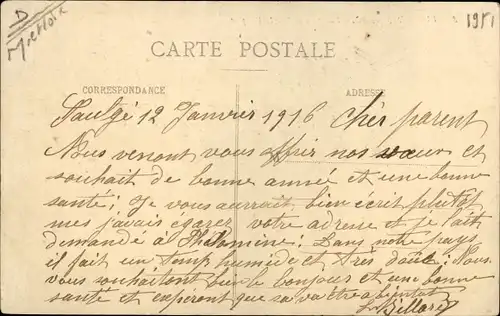 D
1951
CARTE POSTALE
CORRESPONDANCE
ADRESSE
Saulgé 12 Janvier 1916 Chér parent
Nous venont vous offrir nos vœux et
souhait de bonne année et une bonne
santé; Je vous aurrait bien écrit plutôt
mes javais égarez votre adresse et je l'ait
demande à Philomine; Dans notre pays
il fait un temp humide et très doûc; Nous
vous souhaitont bien le bonjour et une bonne
santé et espéront que sa va être a bientôt
Billard